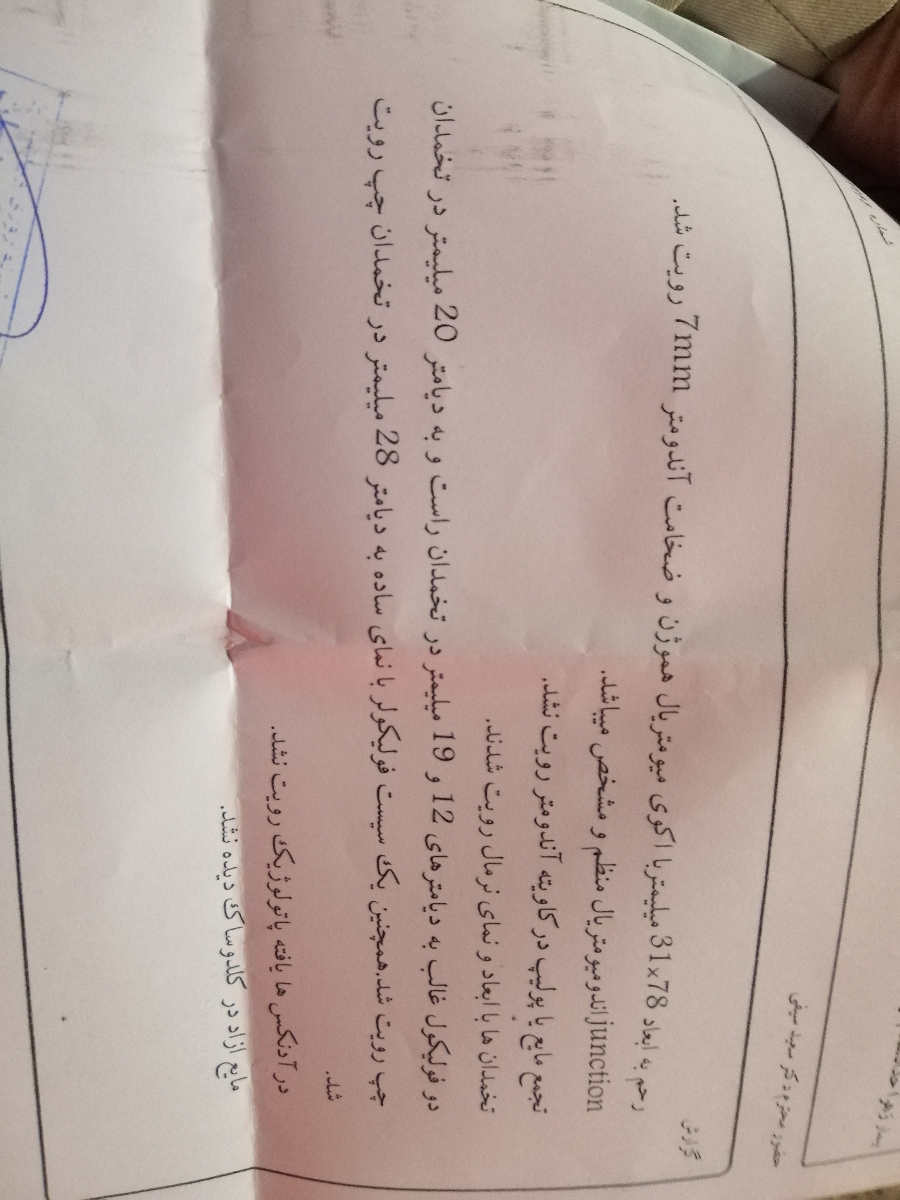 حضور محترم دکتر سعید سیفی
گزارش
رحم به ابعاد 31x78 میلیمتربا اکوی میومتریال هموژن و ضخامت آندومتر 7mm رویت شد.
junctionاندومیومتریال منظم و مشخص میباشد.
تجمع مایع یا پولیپ در کاویته آندومتر رویت نشد.
تخمدان ها با ابعاد و نمای نرمال رویت شدند.
دو فولیکول غالب به دیامترهای 12 و 19 میلیمتر در تخمدان راست و به دیامتر 20 میلیمتر در تخمدان
چپ رویت شد.همچنین یک سیست فولیکولر با نمای ساده به دیامتر 28 میلیمتر در تخمدان چپ رویت
شد.
در آدنکس ها یافته پاتولوژیک رویت نشد.
مایع ازاد در کلدوساک دیده نشد.